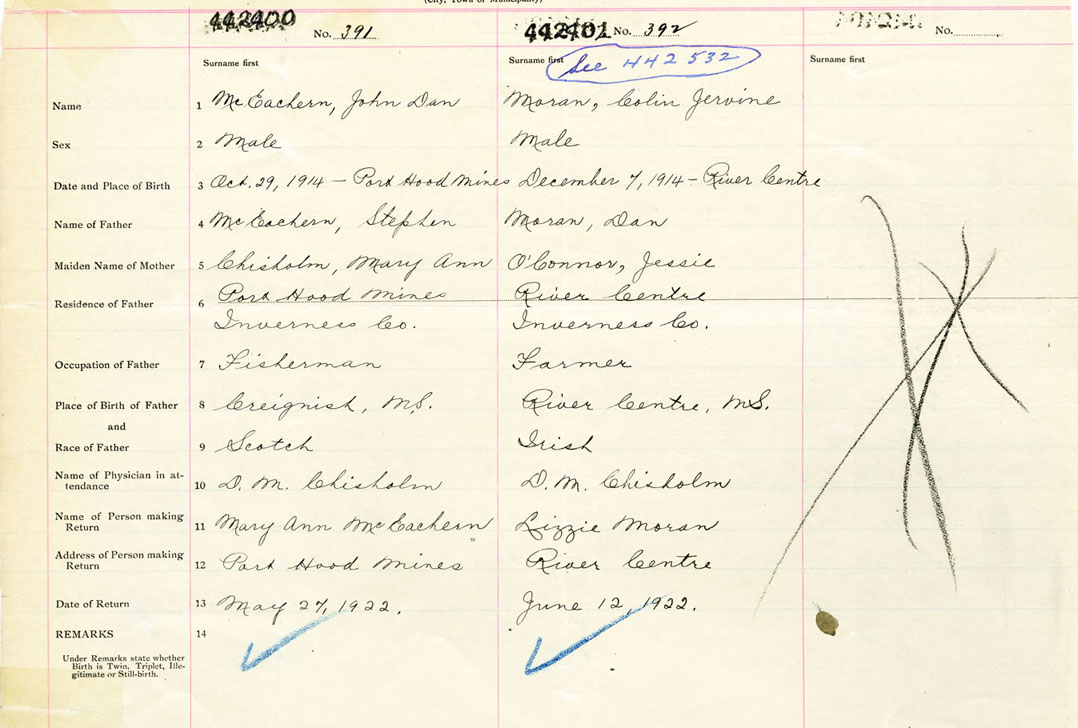 (City, Town or Municipality)
442400 No. 391
442401 No. 392
No.
Surname first
Surname first
Surname first
See 442532
Name 1 McEachern, John Dan Moran, Colin Jervine
Sex 2 Male Male
Date and Place of Birth 3 Oct. 29, 1914 – Port Hood Mines December 7, 1914 – River Centre
Name of Father 4 McEachern, Stephen Moran, Dan
Maiden Name of Mother 5 Chisholm, Mary Ann O'Connor, Jessie
Residence of Father 6 Port Hood Mines River Centre
Inverness Co. Inverness Co.
Occupation of Father 7 Fisherman Farmer
Place of Birth of Father 8 Creignish, N.S. River Centre, N.S.
and
Race of Father 9 Scotch Irish
Name of Physician in at-
tendance 10 D. M. Chisholm D. M. Chisholm
Name of Person making
Return 11 Mary Ann McEachern Lizzie Moran
Address of Person making
Return 12 Port Hood Mines River Centre
Date of Return 13 May 27, 1922. June 12, 1922.
REMARKS 14
Under Remarks state whether
Birth is Twin, Triplet, Ille-
gitimate or Still-birth.